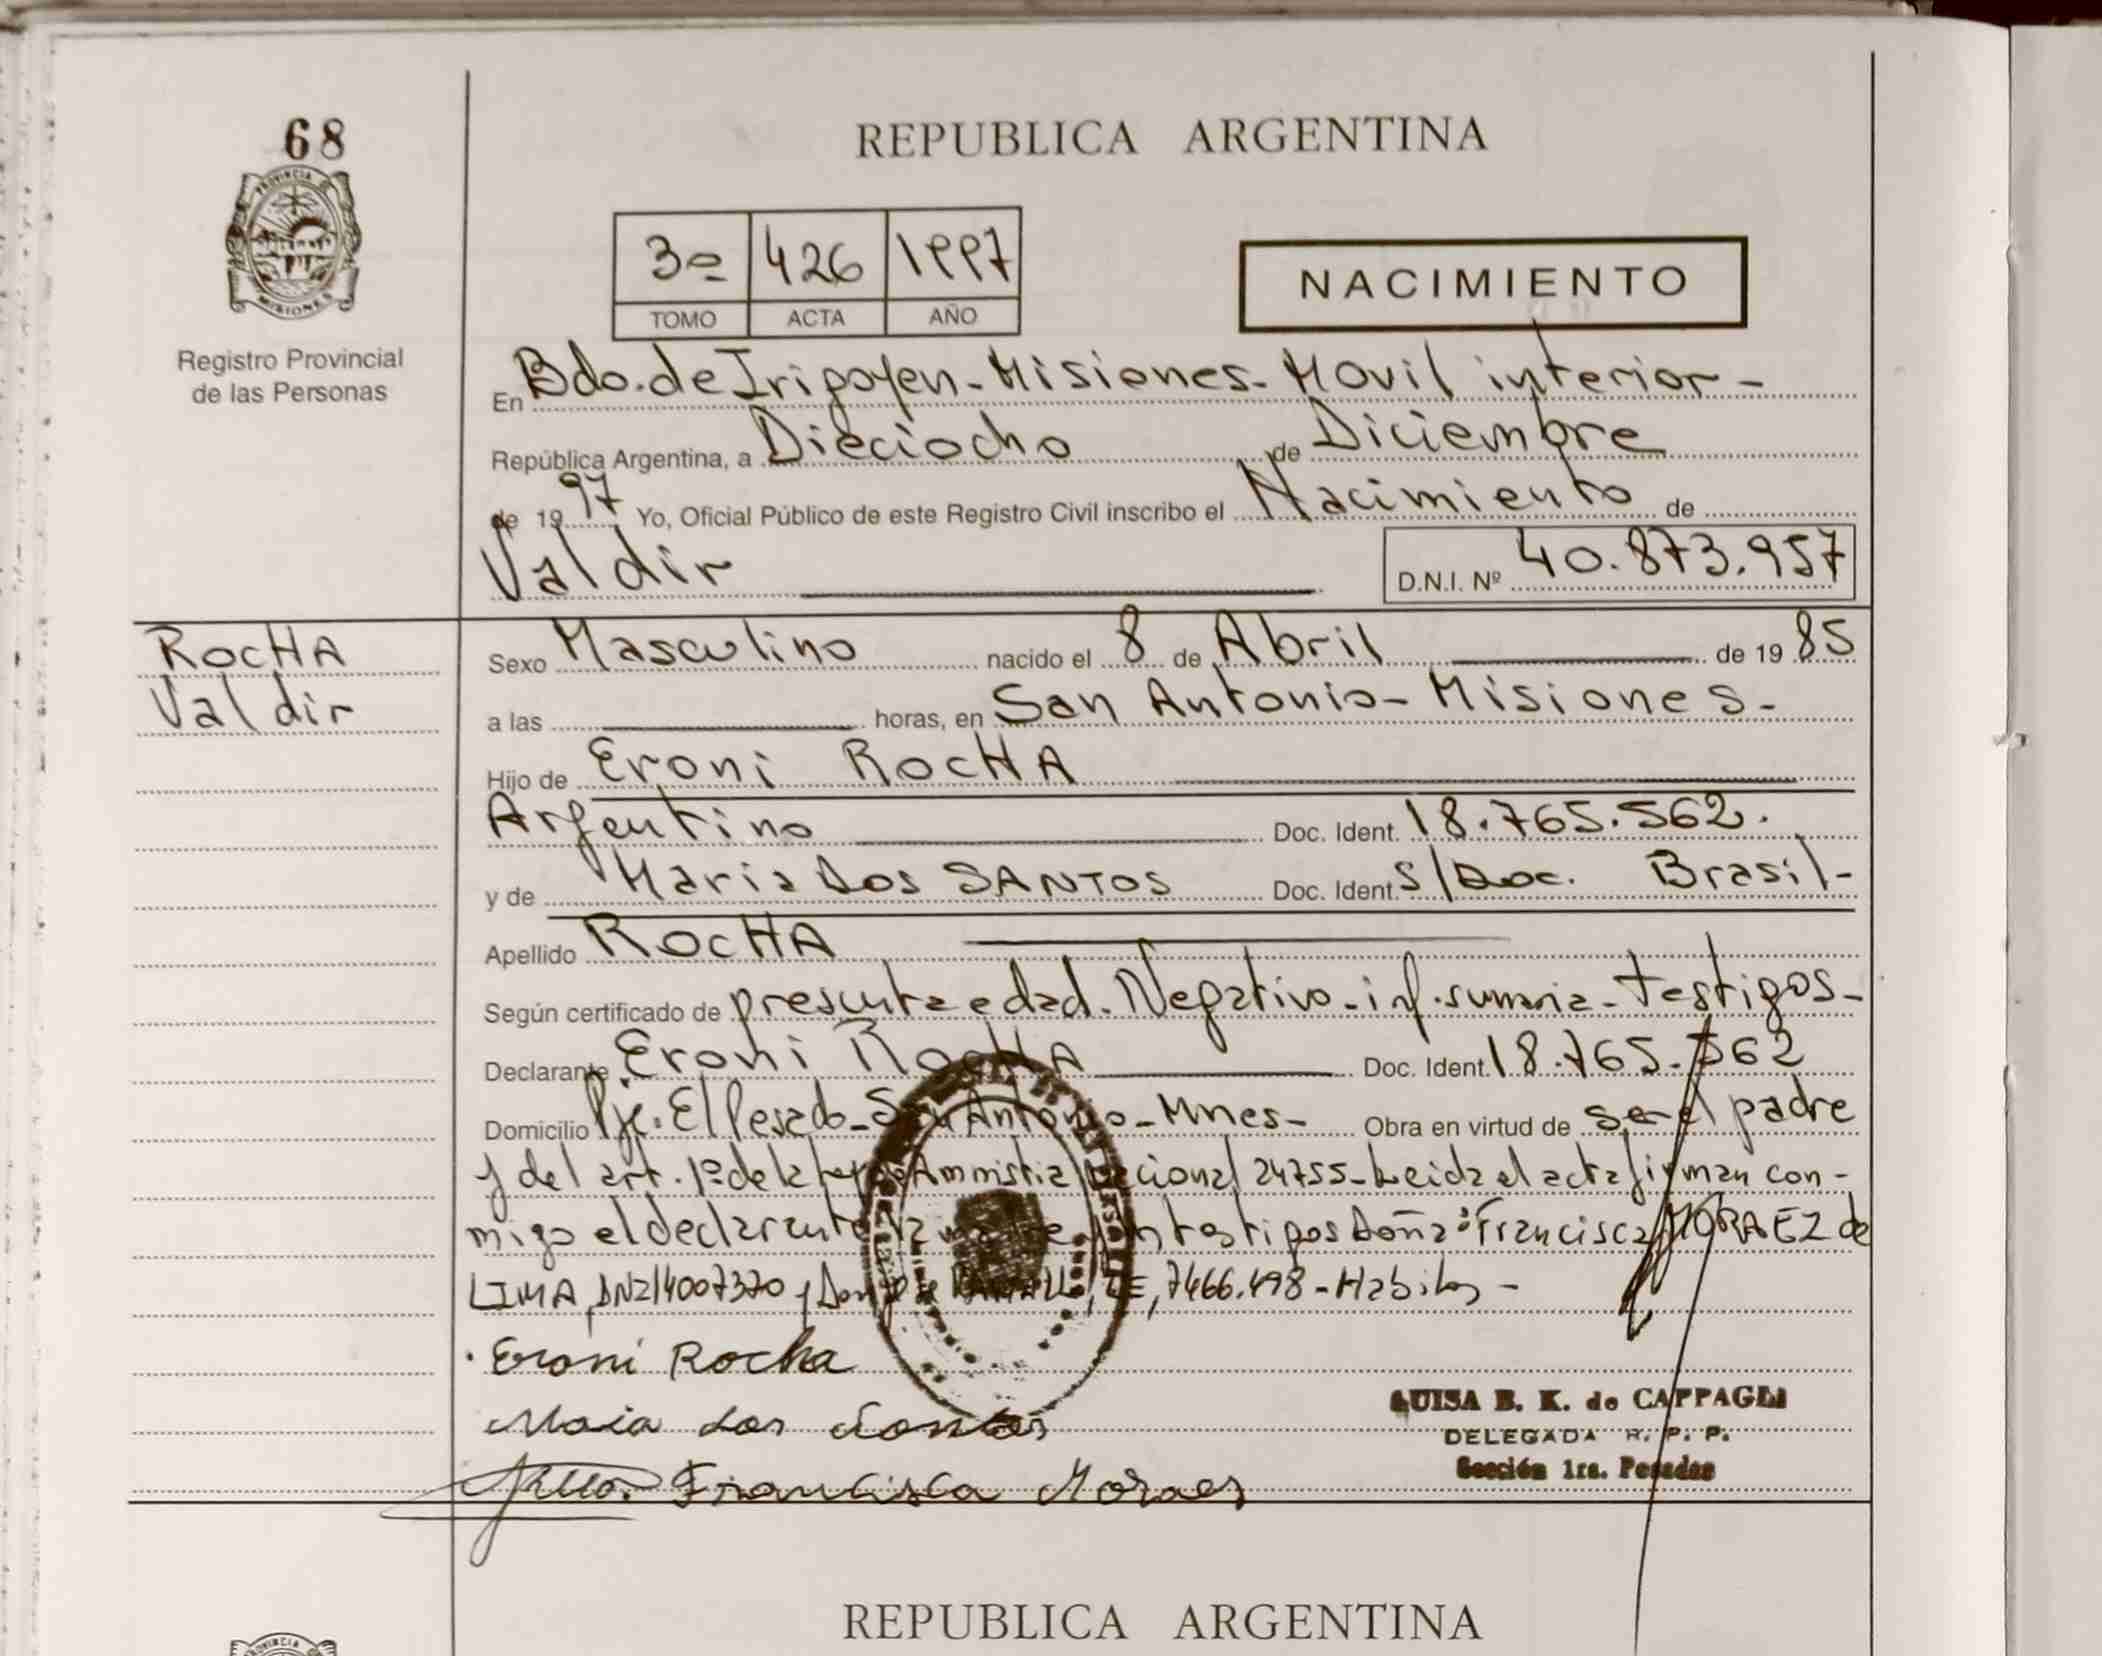 68
PROVINCIA DE
MISIONES
Registro Provincial
de las Personas
REPUBLICA ARGENTINA
3º 426 1997
TOMO ACTA AÑO
NACIMIENTO
En Bdo. de Irigoyen - Misiones - Movil interior -
República Argentina, a Dieciocho de Diciembre
de 1997 Yo, Oficial Público de este Registro Civil inscribo el Nacimiento de
Valdir D.N.I. Nº 40.873.957
RocHA
Valdir
Sexo Masculino nacido el 8 de Abril de 1985
a las horas, en San Antonio - Misiones -
Hijo de Eroni RocHA
Argentino Doc. Ident. 18.765.562.
y de Maria Dos SANTOS Doc. Ident. S/Doc. Brasil -
Apellido RocHA
Según certificado de presunta edad. Negativo - inf. sumaria - testigos -
Declarante Eroni RocHA Doc. Ident. 18.765.562
Domicilio Pje. El Pesado - San Antonio - Mnes - Obra en virtud de ser el padre
y del art. 1º de la ley de Amnistia Nacional 24755 - Leida el acta firman con-
migo el declarante la testigos Doña: Francisca MORAEZ de
LIMA, DNI 14007370 y Don 7466.498 - Habiles -
Eroni Rocha
Maia dos Santos
Francisca Moraes
LUISA B. K. de CAPPAGLI
DELEGADA R. P. P.
Sección 1ra. Posadas
REPUBLICA ARGENTINA
PROVINCIA